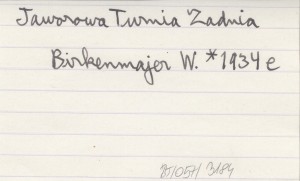 Jaworowa Turnia Zadnia
Birkenmajer W. *1934 e
3184